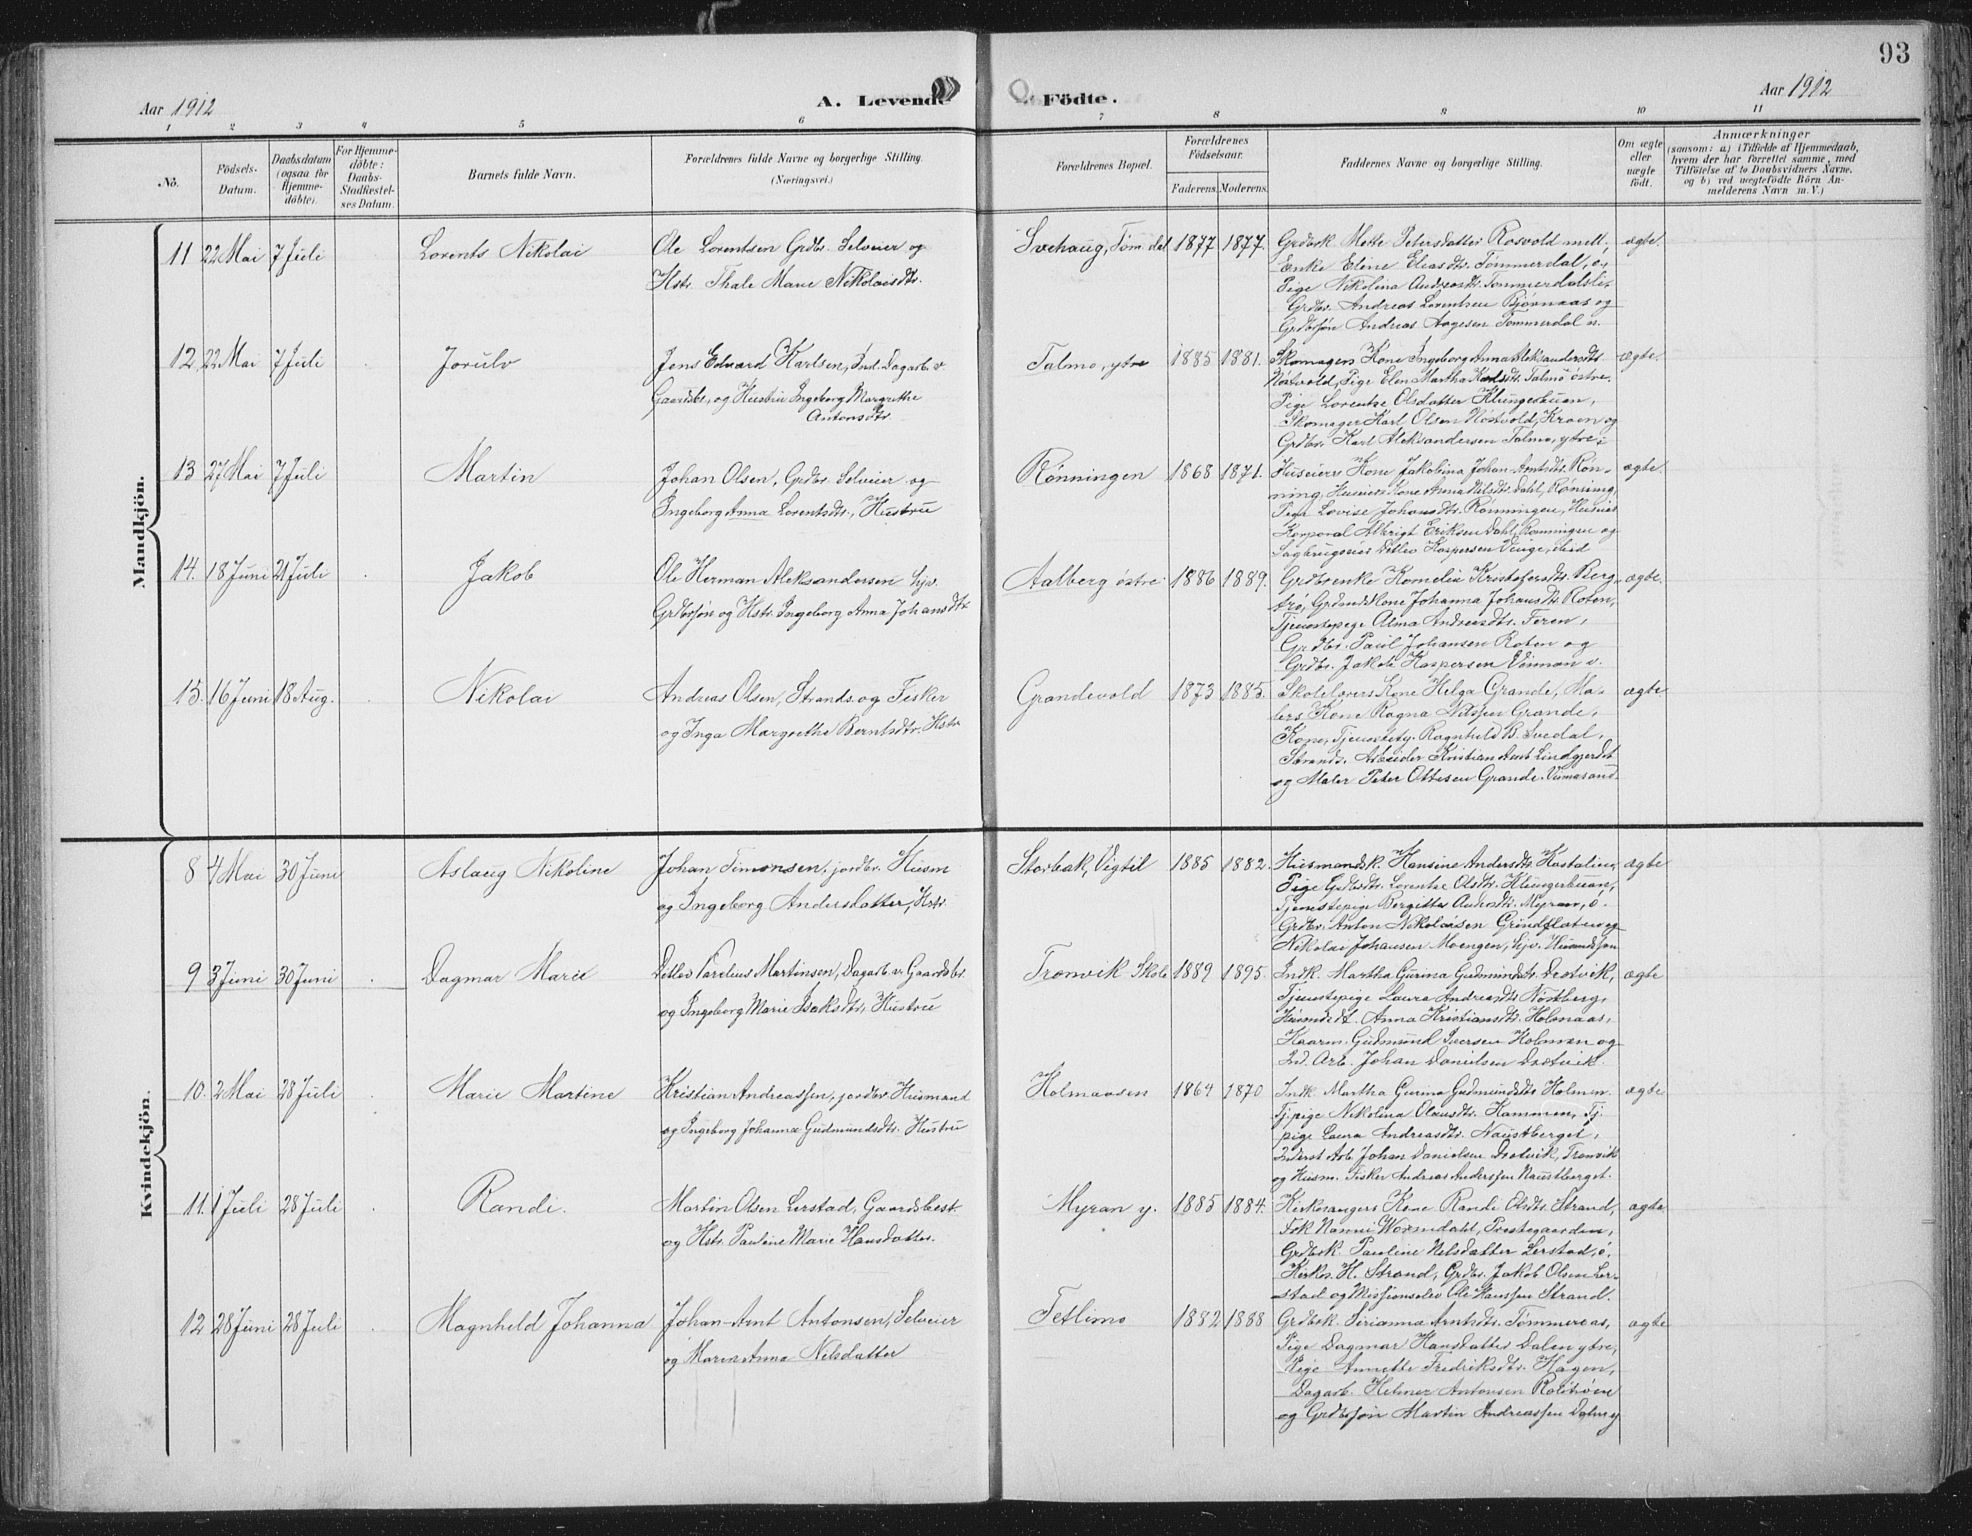 93
Aar 1912
A. Levende Födte.
Aar 1912
1 2 3 4 5 6 7 8 9 10 11
No.
Födsels-Datum.
Daabsdatum (ogsaa for Hjemme-döbte).
For Hjemme-döbte: Daabs-Stadfæstel-ses Datum.
Barnets fulde Navn.
Forældrenes fulde Navne og borgerlige Stilling.
(Næringsvei.)
Forældrenes Bopæl.
Forældrenes Födselsaar.
Faderens. Moderens.
Faddernes Navne og borgerlige Stilling.
Om ægte eller uægte födt.
Anmærkninger
(saasom: a) i Tilfælde af Hjemmedaab,
hvem der har forrettet samme, med
Tilföielse af to Daabsvidners Navne,
og b) ved uægtefödte Börn An-
melderens Navn m. V.)
Mandkjön.
11 22 Mai 7 Juli Lorents Nikolai
Ole Lorentsen Grdbr. Selveier og
Hstr. Thale Marie Nikolaisdtr.
Svehaug, Tömdal 1877 1877.
Grdbrk. Mette Petersdatter Rosvold mell.
Enke Eline Eliasdtr. Tömmerdal, ö,
Pige Nikolina Andreasdtr. Tömmerdalsli,
Grdbr. Andreas Lorentsen Björnaas og
Grdbrsön Andreas Aagesen Tömmerdal n.
ægte
12 22 Mai 7 Juli Jorulv
Jens Edvard Karlsen, Ind. Dagarb. v.
Gaardsbr., og Hustru Ingeborg Margrethe
Antonsdtr.
Talmo, ytre 1885 1881.
Skomagers Kone Ingeborg Anna Aleksandersdtr.
Nöstvold, Pige Elen Martha Karlsdtr. Talmo östre.
Pige Lorentse Olsdatter Klungerbuan,
Skomager Karl Olsen Nöstvold, Kraen og
Grdbr. Karl Aleksandersen Talmo, ytre.
ægte.
13 27 Mai 7 Juli Martin
Johan Olsen, Grdbr. Selveier og
Ingeborg Anna Lorentsdtr., Hustru
Rönningen 1868 1871.
Huseiers Kone Jakobina Johan-Arntsdtr. Rön-
ning, Huseiers Kone Anna Nilsdtr. Dahl, Rönning,
Pige Lovise Johansdtr. Rönningen, Huseier
Korporal Albrigt Eriksen Dahl, Rönningen og
Sagbrugseier Detlev Kaspersen Vinge, ibid
ægte.
14. 18 Juni 21 Juli Jakob
Ole Herman Aleksandersen hjv.
Grdbrsön og Hstr. Ingeborg Anna Johansdtr.
Aalberg östre 1886 1889.
Grdbrenke Kornelia Kristofersdtr. Berg-
trö, Grdmds Kone Johanna Johansdtr. Roten,
Tjenestepige Alma Andreasdtr. Feren,
Grdbr. Paul Johansen Roten og
Grdbr. Jakob Kaspersen Vinnan v.
ægte.
15. 16 Juni 18 Aug. Nikolai
Andreas Olsen, Strands. og Fisker
og Inga Margrethe Berntsdtr. Hstr
Grandevold 1873 1885.
Skolelærers Kone Helga Grande, Ma-
lers Kone Ragna Nilssen Grande,
Kone, Tjenestep. Ragnhild B. Svedal,
Strands. Arbeider Kristian Arnt Lindgjerdet
og Maler Peter Ottesen Grande. Vinnasand
ægte
Kvindekjön.
8 4 Mai 30 Juni Aslaug Nikoline
Johan Simonsen, jordbr. Husm
og Ingeborg Andersdatter, Hstr.
Storbak, Vigtil 1885 1882.
Husmandsk. Hansine Andersdtr. Hustalien,
Pige Grdbrdtr. Lorentse Olsdtr. Klungerbuan,
Tjenestepige Bergitta Andersdtr. Myran, ö.
Grdbr. Anton Nikolaisen Gröndflaten og
Nikolai Johansen Moengen, hjv. Husmdssön
ægte
9 3 Juni 30 Juni Dagmar Marie
Ditlev Parelius Martinsen, Dagarb. v. Gaardsbr.
og Ingeborg Marie Isaksdtr. Hustru
Tronvik Skole 1889 1895.
Indk. Martha Gurina Gudmundsdtr. Drotvik,
Tjenestepige Laura Andreasdtr. Nöstberg,
Husmdsdt. Anna Kristiansdtr. Holmaas,
Haarm. Gudmund Iversen Holman og
Ind. Arb. Johan Danielsen Drotvik.
ægte
10. 2 Mai 28 Juli Marie Martine
Kristian Andreassen, jordbr. Husmand
og Ingeborg Johanna Gudmundsdtr. Hustru
Holmaasen 1864 1870
Indk. Martha Gurina Gudmundsdtr Holmen.
Tj.pige Nikolina Olausdtr. Hammen, Tj.
pige Laura Andreasdtr. Naustberget,
Inderst Arb. Johan Danielsen Drotvik, Tronvik
og Husm. Fisker Andreas Anderssen Naustberget.
ægte
11. 1 Juli 28 Juli Randi.
Martin Olsen Lerstad, Gaardsbest.
og Hstr. Pauline Marie Hansdatter.
Myran y. 1885 1884.
Kirkesangers Kone Randi Olsdtr. Strand,
Frk Nanni Wormdahl, Prestegaarden,
Grdbrk. Pauline Nilsdatter Lerstad, ö.
Kirkes. H. Strand, Grdbr. Jakob Olsen Ler-
stad og Missionselev Ole Hanssen Strand.
ægte
12 28 Juni 28 Juli Magnhild Johanna
Johan-Arnt Antonsen, Selveier
og Maren Anna Nilsdatter
Tetlimo 1882 1888
Grdbrk. Sirianna Arntsdtr. Tömmeraas,
Pige Dagmar Hansdatter Dalen ytre,
Pige Annette Fredriksdtr. Hagen,
Dagarb. Helmer Antonsen Rolihöen
og Grdbrsön Martin Andreassen Dalen y
ægte